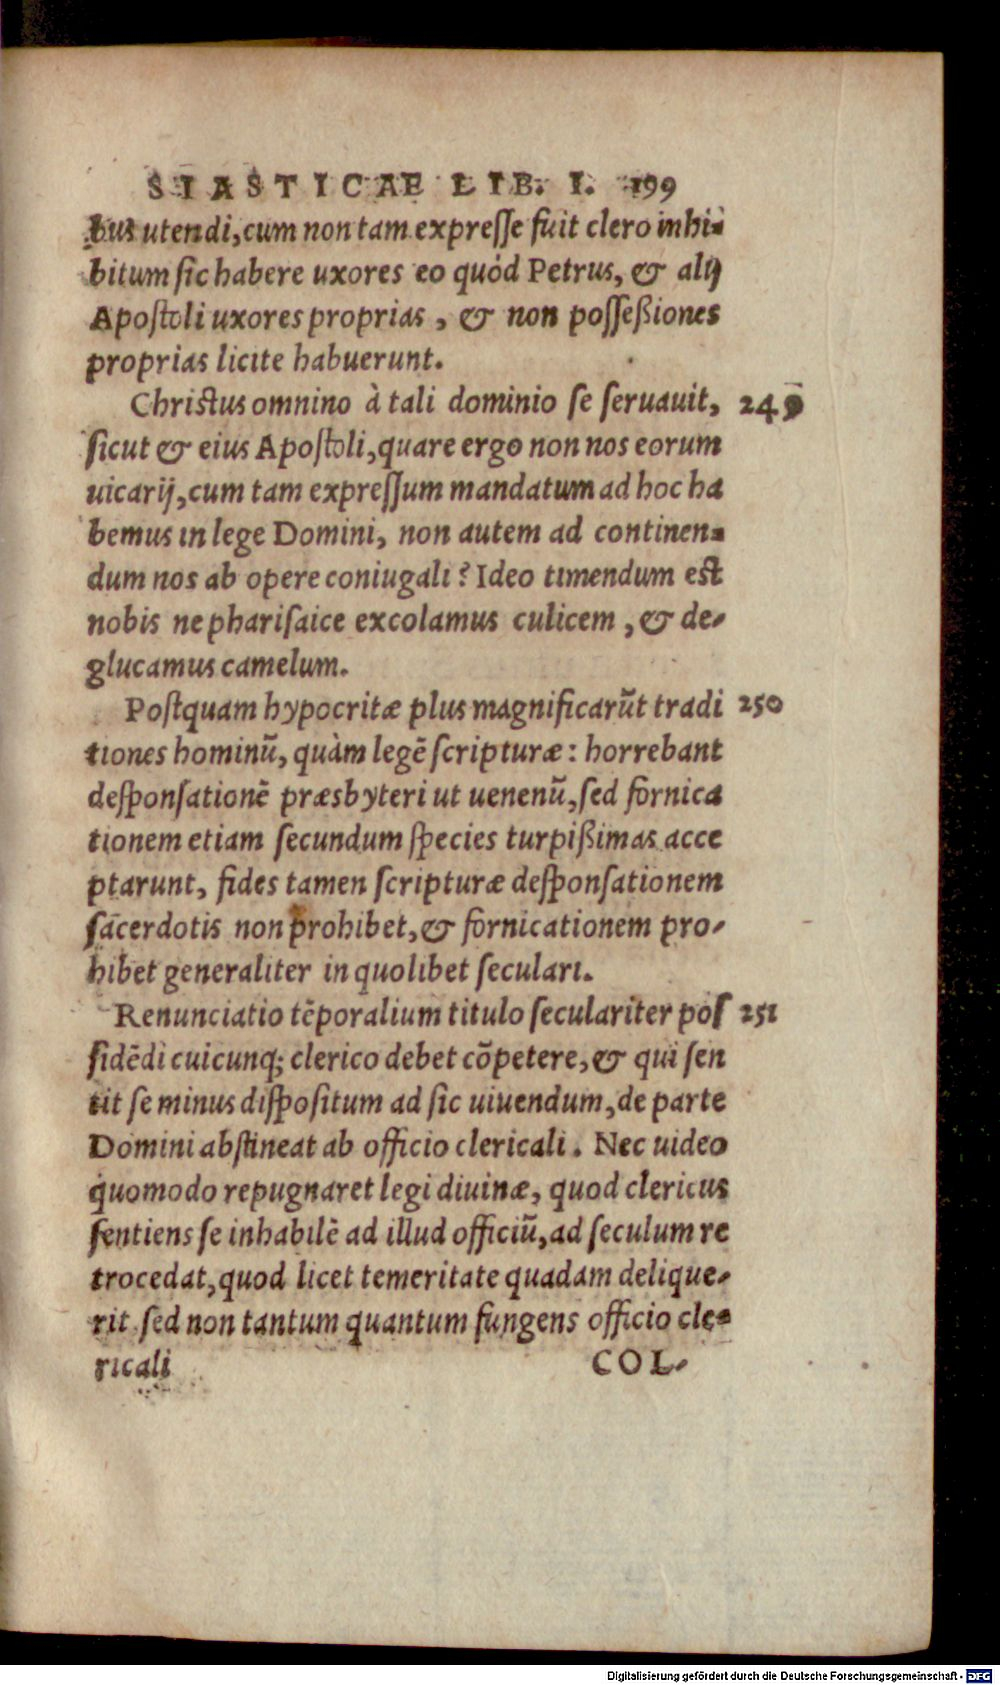 SIASTICAE LIB. I. 199
bus utendi, cum non tam expresse fuit clero inhi-
bitum sic habere uxores eo quòd Petrus, & alij
Apostoli uxores proprias, & non possessiones
proprias licite habuerunt.
Christus omnino à tali dominio se seruauit, 249
sicut & eius Apostoli, quare ergo non nos eorum
uicarij, cum tam expressum mandatum ad hoc ha
bemus in lege Domini, non autem ad continen-
dum nos ab opere coniugali? Ideo timendum est
nobis ne pharisaice excolamus culicem, & de-
glucamus camelum.
Postquam hypocritæ plus magnificarūt tradi 250
tiones hominū, quàm legē scripturæ: horrebant
desponsationē præsbyteri ut uenenū, sed fornica
tionem etiam secundum species turpißimas acce
ptarunt, fides tamen scripturæ desponsationem
sācerdotis non prohibet, & fornicationem pro-
hibet generaliter in quolibet seculari.
Renunciatio tēporalium titulo seculariter pos 251
sidēdi cuicunq; clerico debet cōpetere, & qui sen
tit se minus dispositum ad sic uiuendum, de parte
Domini abstineat ab officio clericali. Nec uideo
quomodo repugnaret legi diuinæ, quod clericus
sentiens se inhabilē ad illud officiū, ad seculum re
trocedat, quod licet temeritate quadam delique-
rit sed non tantum quantum fungens officio cle-
ricali COL-
Digitalisierung gefördert durch die Deutsche Forschungsgemeinschaft - DFG